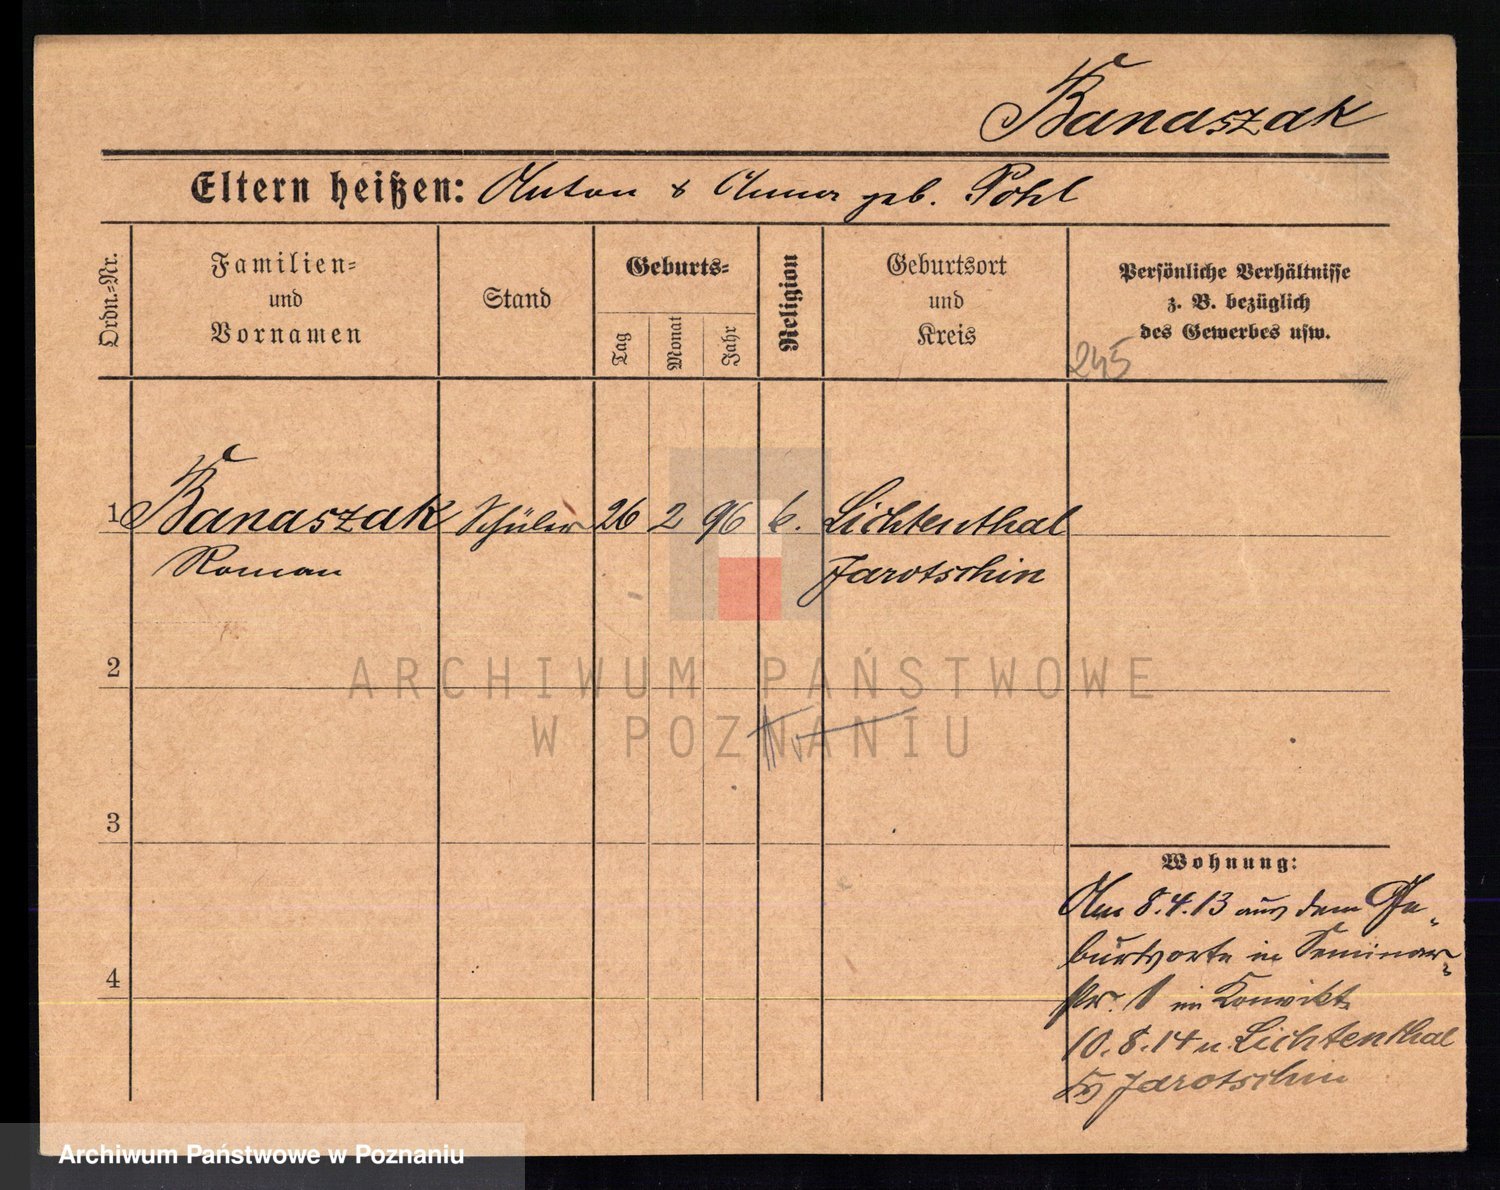 Banaszak
Eltern heißen: Anton & Anna geb. Pohl
Ordn.-Nr.
Familien-
und
Vornamen
Stand
Geburts-
Tag
Monat
Jahr
Religion
Geburtsort
und
Kreis
Persönliche Verhältnisse
z. B. bezüglich
des Gewerbes usw.
245
1 Banaszak Schüler 26 2 96 k. Lichtenthal
Roman Jarotschin
2
ARCHIWUM PAŃSTWOWE
W POZNANIU
3
Wohnung:
Am 8.4.13 aus dem Ge-
burtsorte in Seminar-
str. 1 im Konvikt
10.8.14 n. Lichtenthal
Ks Jarotschin
4
Archiwum Państwowe w Poznaniu